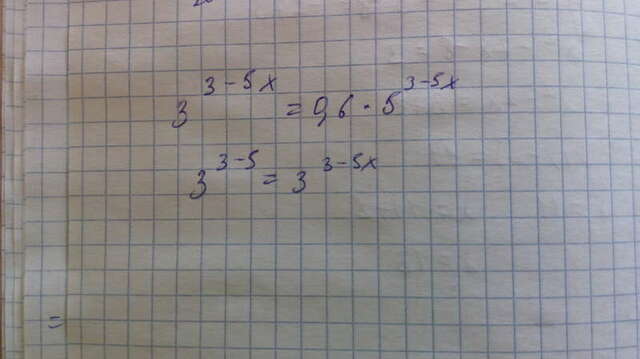 3^{3-5x} = 0,6 \cdot 5^{3-5x}
3^{3-5} = 3^{3-5x}
=